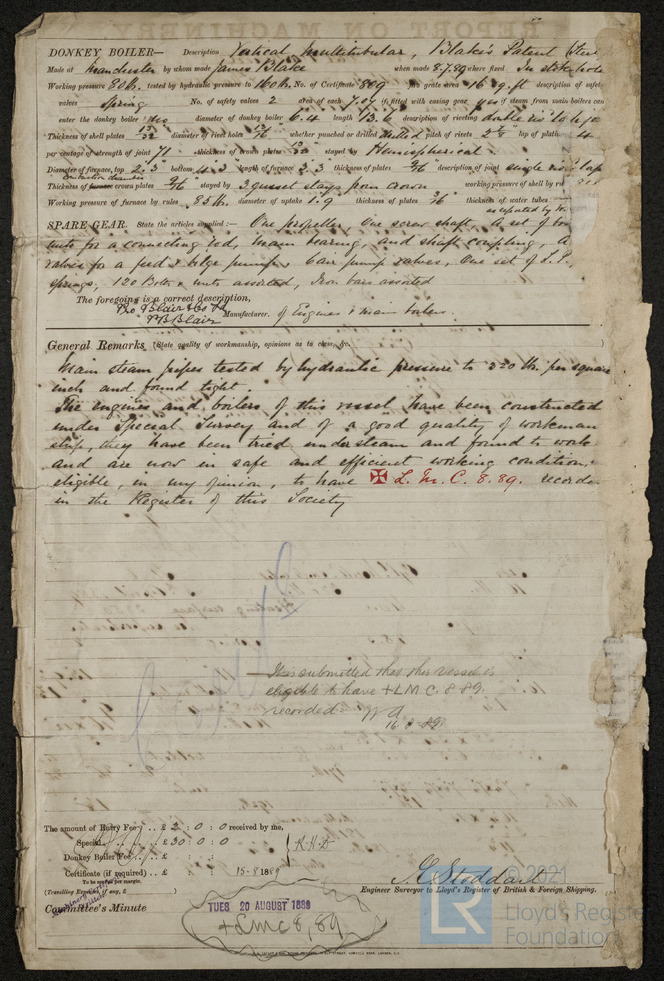 DONKEY BOILER— Description Vertical Multitubular Blake's Patent Steel
Made at Manchester by whom made James Blake when made 8.7.89 where fixed In stokehole
Working pressure 80 lb. tested by hydraulic pressure to 160 lb. No. of Certificate 809 fire grate area 16 sq. ft description of safety
valves Spring No. of safety valves 2 area of each 7.07 if fitted with easing gear yes if steam from main boilers can
enter the donkey boiler No diameter of donkey boiler 6.4 length 13.6 description of riveting double riv lap
Thickness of shell plates 13/32 diameter of rivet holes whether punched or drilled drilled pitch of rivets lap of plating 4
per centage of strength of joint 71 thickness of crown plates stayed by Hemispherical
Diameter of furnace, top bottom length of furnace thickness of plates 9/16 description of joint single riv lap
Thickness of furnace crown plates 9/16 stayed by 3 gusset stays from crown working pressure of shell by rules
Working pressure of furnace by rules 85 lb. diameter of uptake 1.9 thickness of plates thickness of water tubes
SPARE GEAR. State the articles supplied:— One propeller, One screw shaft, A set of
nuts for a connecting rod, main bearing, and shaft coupling, A
valves for a feed & bilge pump, 6 air pump valves, One set of L.P.
springs, 120 Bolts & nuts assorted, Iron bars assorted
The foregoing is a correct description,
Pro Blair & Co Ld
Blair Manufacturer. of Engines & main boilers
General Remarks (State quality of workmanship, opinions as to class, &c.
Main steam pipes tested by hydraulic pressure to 320 lb. per square
inch and found tight.
The engines and boilers of this vessel have been constructed
under Special Survey and of a good quality of workman
ship, they have been tried under steam and found to work
and are now in safe and efficient working condition,
eligible, in my opinion, to have ✠ L.M.C. 8.89. recorded
in the Register of this Society
It is submitted that this vessel is
eligible to have +L.M.C. 8.89.
recorded
16.8.89
The amount of Entry Fee .. £ 2 : 0 : 0 received by me,
Special .. £ 30 : 0 : 0
Donkey Boiler Fee .. £ : :
Certificate (if required) .. £ : : 15-8 1889
To be sent as per margin.
(Travelling Expenses, if any, £ )
Stoddart
Engineer Surveyor to Lloyd's Register of British & Foreign Shipping.
Committee's Minute
TUES 20 AUGUST 1889
+LMC 8,89
© 2021
LR
Lloyd's Register
Foundation